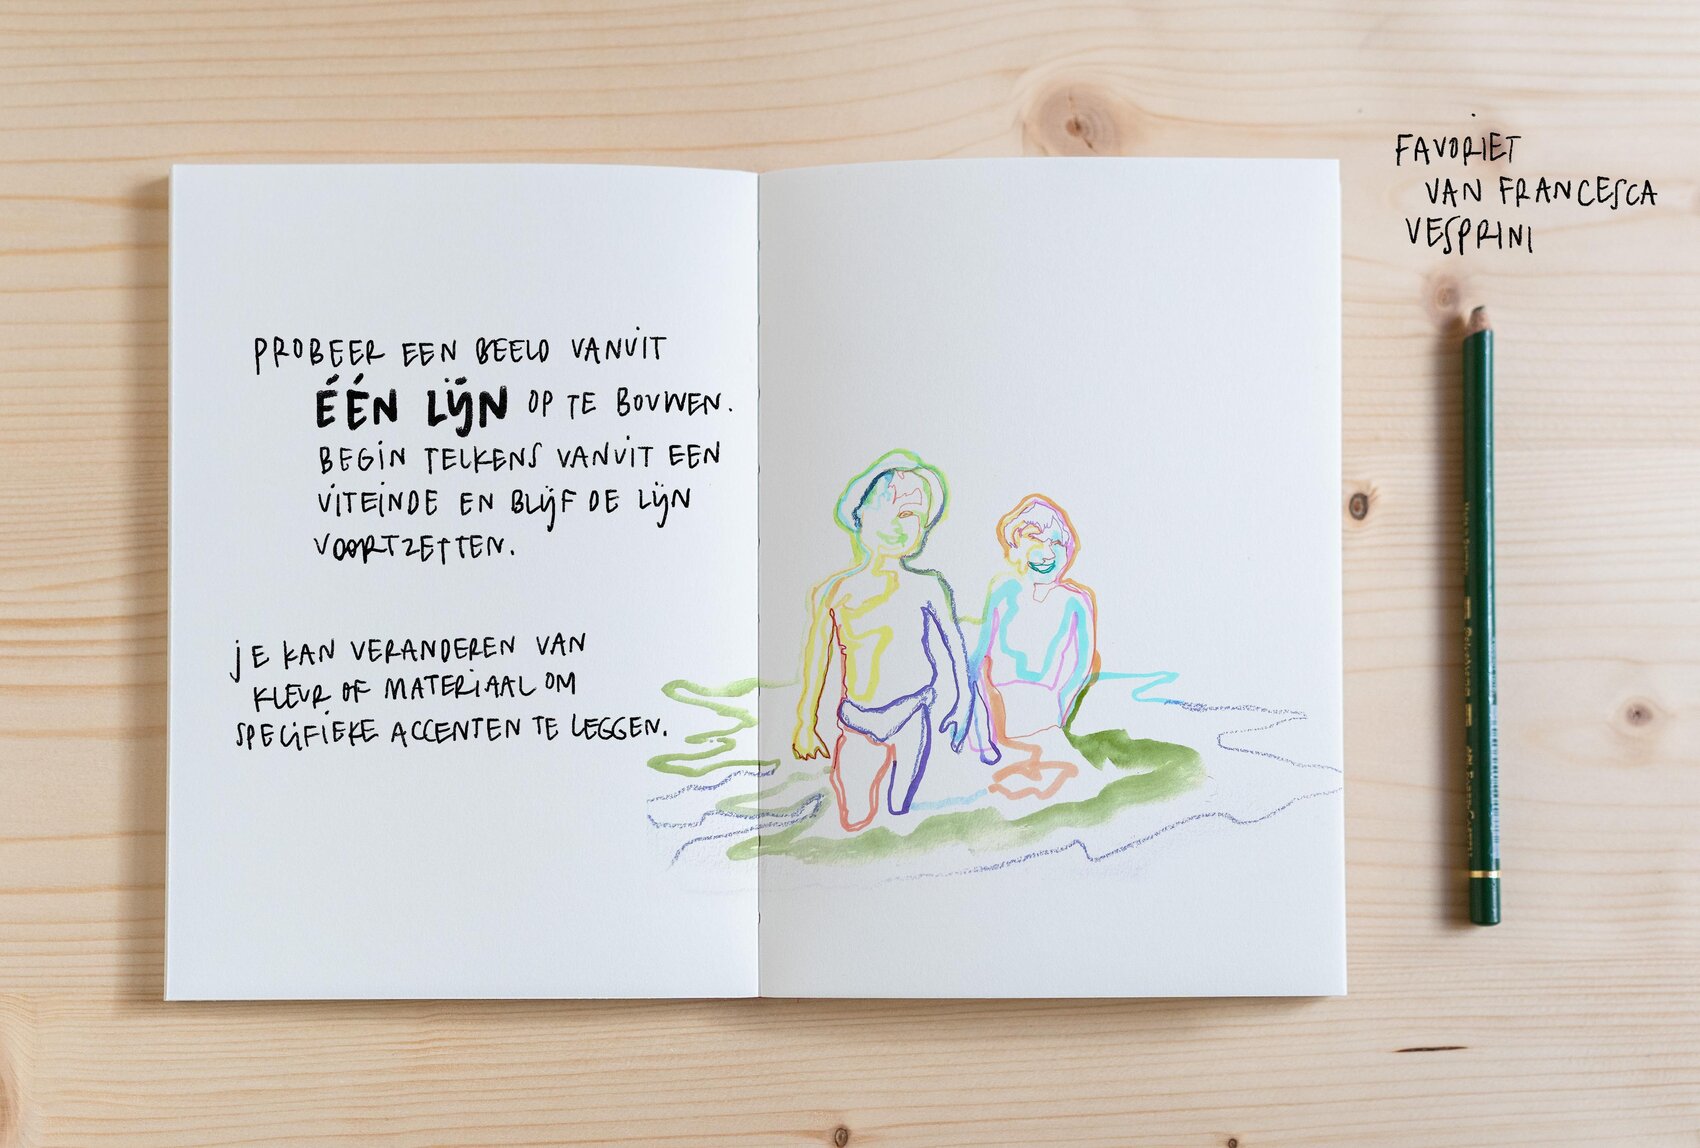 PROBEER EEN BEELD VANUIT
ÉÉN LIJN OP TE BOUWEN.
BEGIN TELKENS VANUIT EEN
UITEINDE EN BLIJF DE LIJN
VOORTZETTEN.
JE KAN VERANDEREN VAN
KLEUR OF MATERIAAL OM
SPECIFIEKE ACCENTEN TE LEGGEN.
FAVORIET
VAN FRANCESCA
VESPRINI